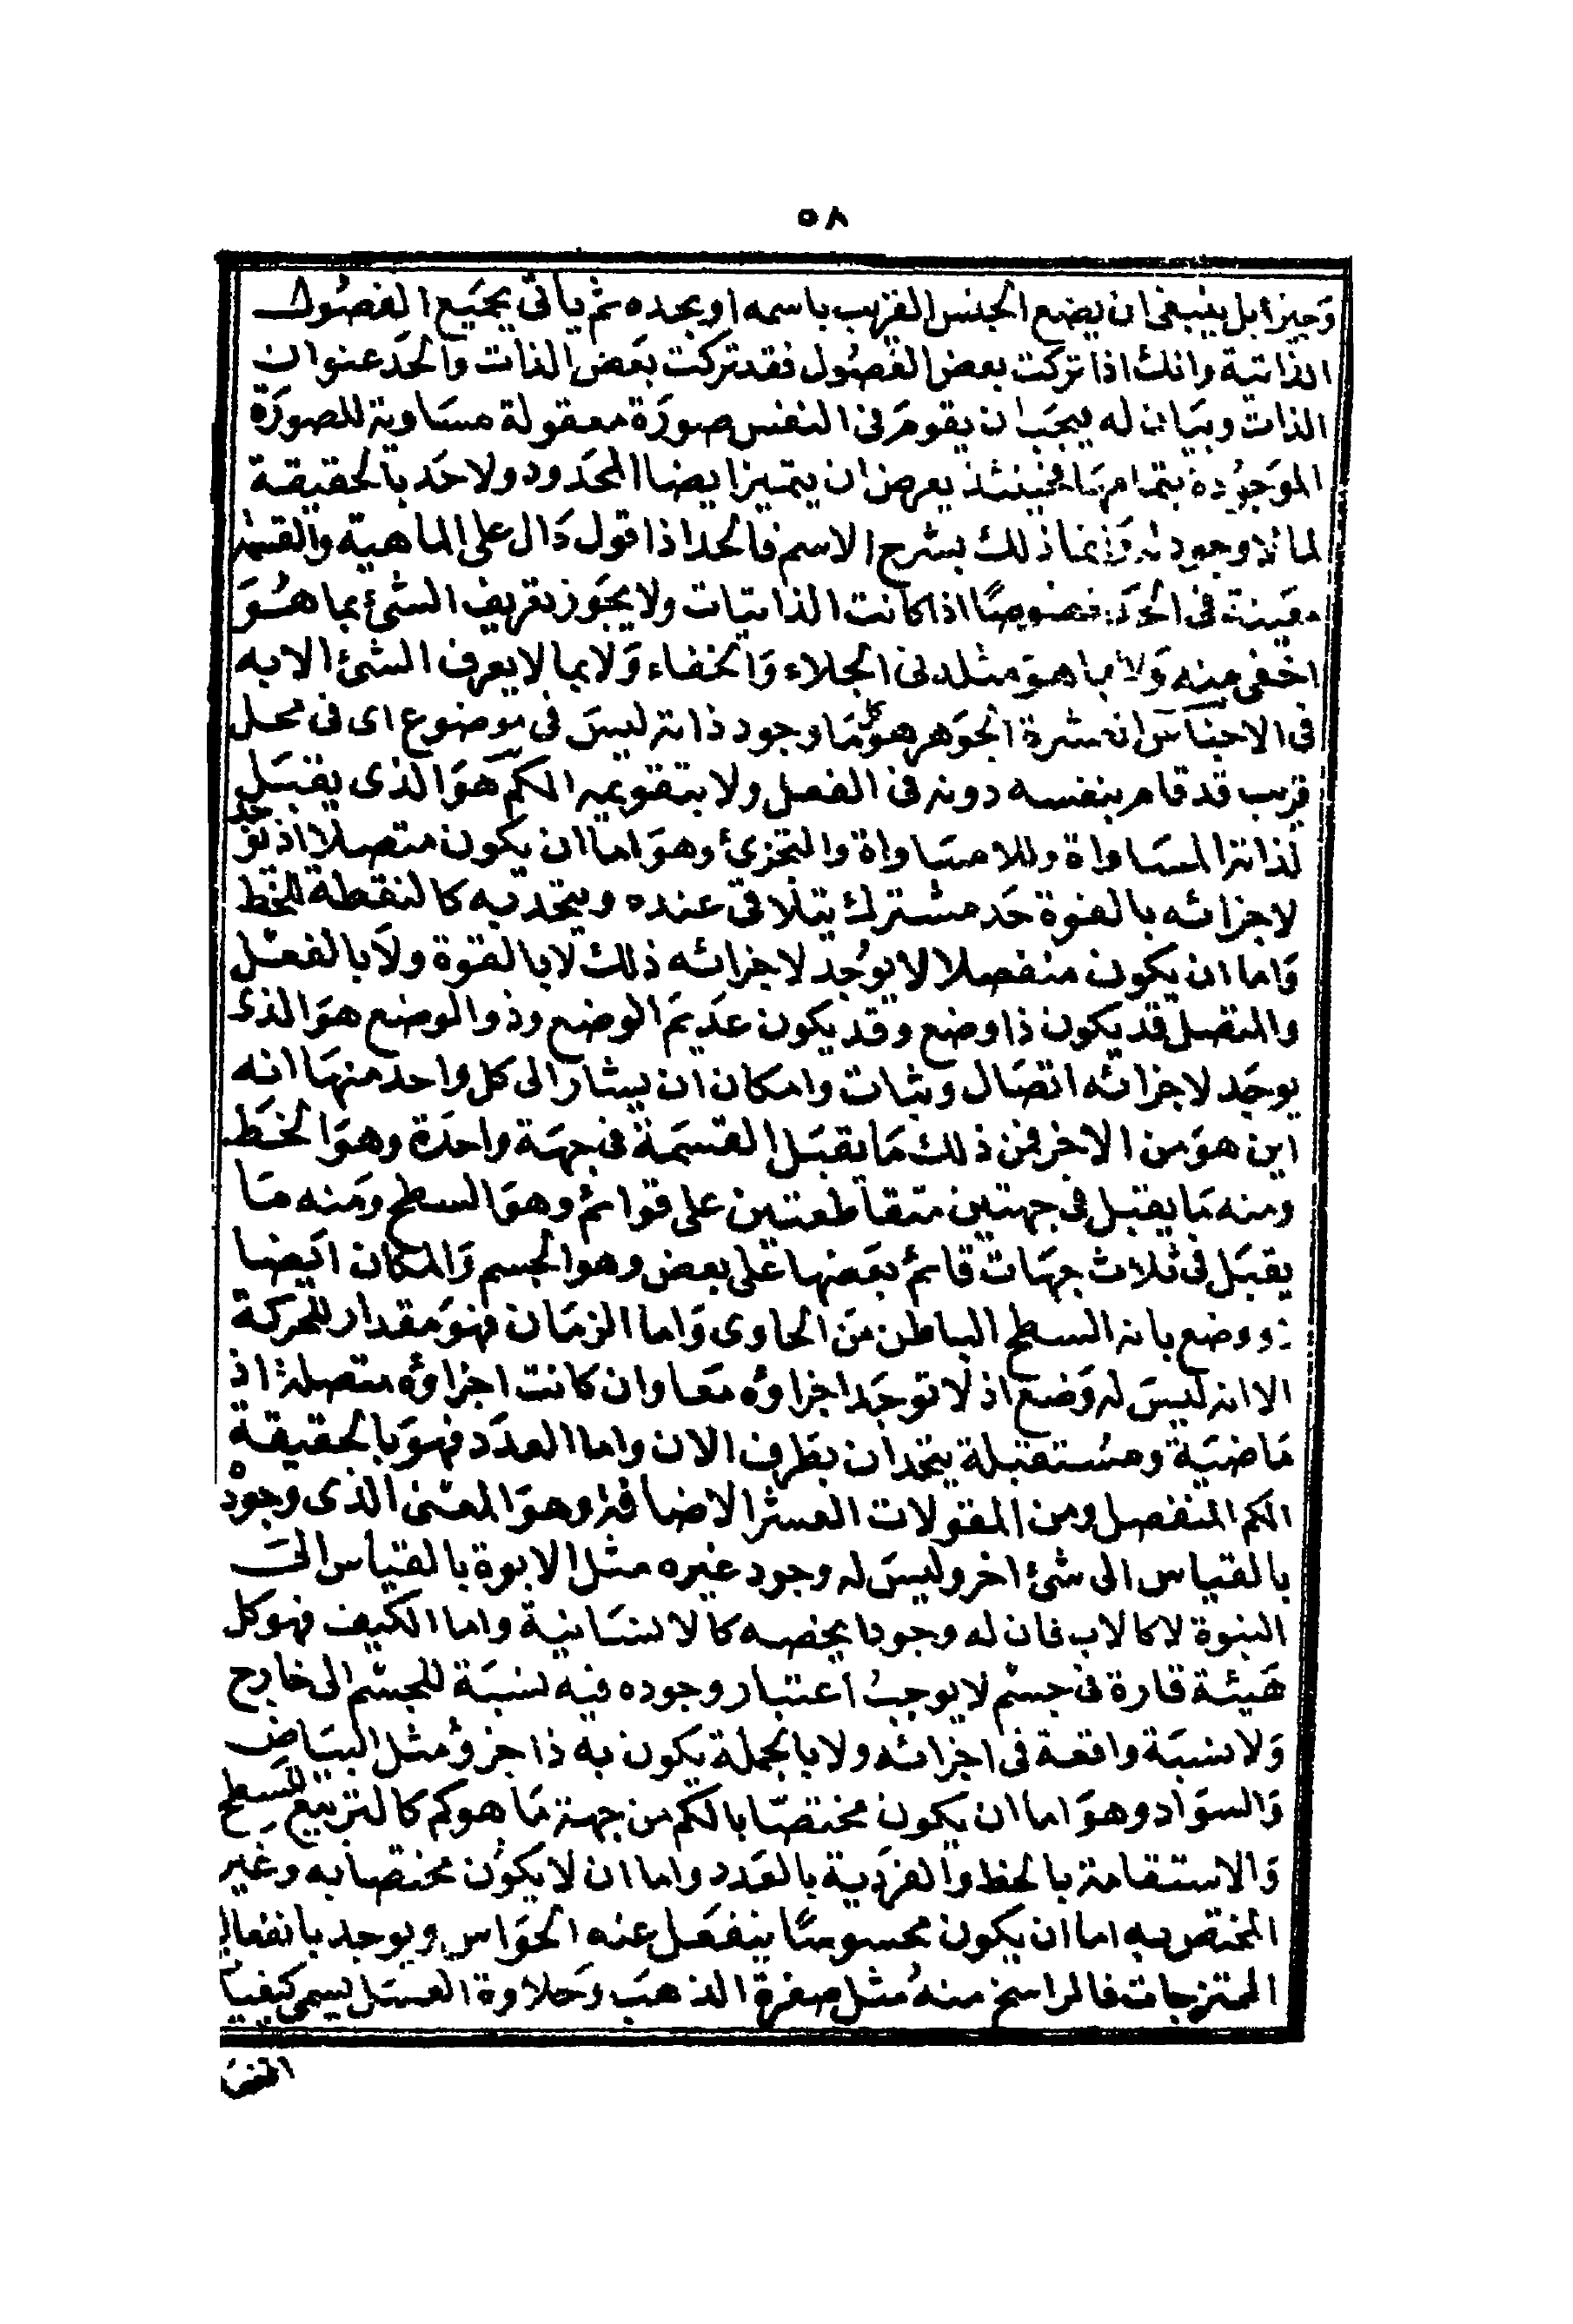 ٥٨
وجيزا بل ينبغى ان يضع الجنس القريب باسمه او بحده ثم يأتى بجميع الفصول
الذاتية وانك اذا تركت بعض الفصول فقد تركت بعض الذات والحد عنوان
الذات وبيان له يجب ان يقوم فى النفس صورة معقولة مساوية للصورة
الموجودة بتمامها فحينئذ يعرض ان يتميز ايضا المحدود ولا حد بالحقيقة
لما لا وجود له وانما ذلك بشرح الاسم فالحد اذا قول دال على الماهية والقسمة
معينة فى الحد خصوصا اذا كانت الذاتيات ولا يجوز تعريف الشئ بما هو
اخفى منه ولا بما هو مثله فى الجلاء والخفاء ولا بما لا يعرف الشئ الا به
فى الاجناس العشرة الجوهر هو كل ما وجود ذاته ليس فى موضوع اى فى محل
قريب قد قام بنفسه دونه فى الفعل ولا بتقويمه الكم هو الذى يقبل
لذاته المساواة واللا مساواة والتجزئ وهو اما ان يكون متصلا اذ توجد
لاجزائه بالقوة حد مشترك يتلاقى عنده ويتحد به كالنقطة للخط
واما ان يكون منفصلا لا يوجد لاجزائه ذلك لا بالقوة ولا بالفعل
والمتصل قد يكون ذا وضع وقد يكون عديم الوضع وذو الوضع هو الذى
يوجد لاجزائه اتصال وثبات وامكان ان يشار الى كل واحد منها انه
اين هو من الاخر فمن ذلك ما يقبل القسمة فى جهة واحدة وهو الخط
ومنه ما يقبل فى جهتين متقاطعتين على قوائم وهو السطح ومنه ما
يقبل فى ثلاث جهات قائم بعضها على بعض وهو الجسم والمكان ايضا
ذو وضع بانه السطح الباطن من الحاوى واما الزمان فهو مقدار للحركة
الا انه ليس له وضع اذ لا توجد اجزاؤه معا وان كانت اجزاؤه متصلة اذ
ماضية ومستقبلة يتحدان بطرف الان واما العدد فهو بالحقيقة
الكم المنفصل ومن المقولات العشر الاضافة وهو المعنى الذى وجوده
بالقياس الى شئ اخر وليس له وجود غيره مثل الابوة بالقياس الى
البنوة لا كالاب فان له وجودا يخصه كالانسانية واما الكيف فهو كل
هيئة قارة فى جسم لا يوجب اعتبار وجوده فيه نسبة للجسم الى خارج
ولا نسبة واقعة فى اجزائه ولا بالجملة يكون به ذا جزؤ مثل البياض
والسواد وهو اما ان يكون مختصا بالكم من جهة ما هو كم كالتربيع للسطح
والاستقامة بالخط والفردية بالعدد واما ان لا يكون مختصا به وغير
المختص به اما ان يكون محسوسا ينفعل عنه الحواس ويوجد بانفعال
الممتزجات فالراسخ منه مثل صفرة الذهب وحلاوة العسل يسمى كيفيات